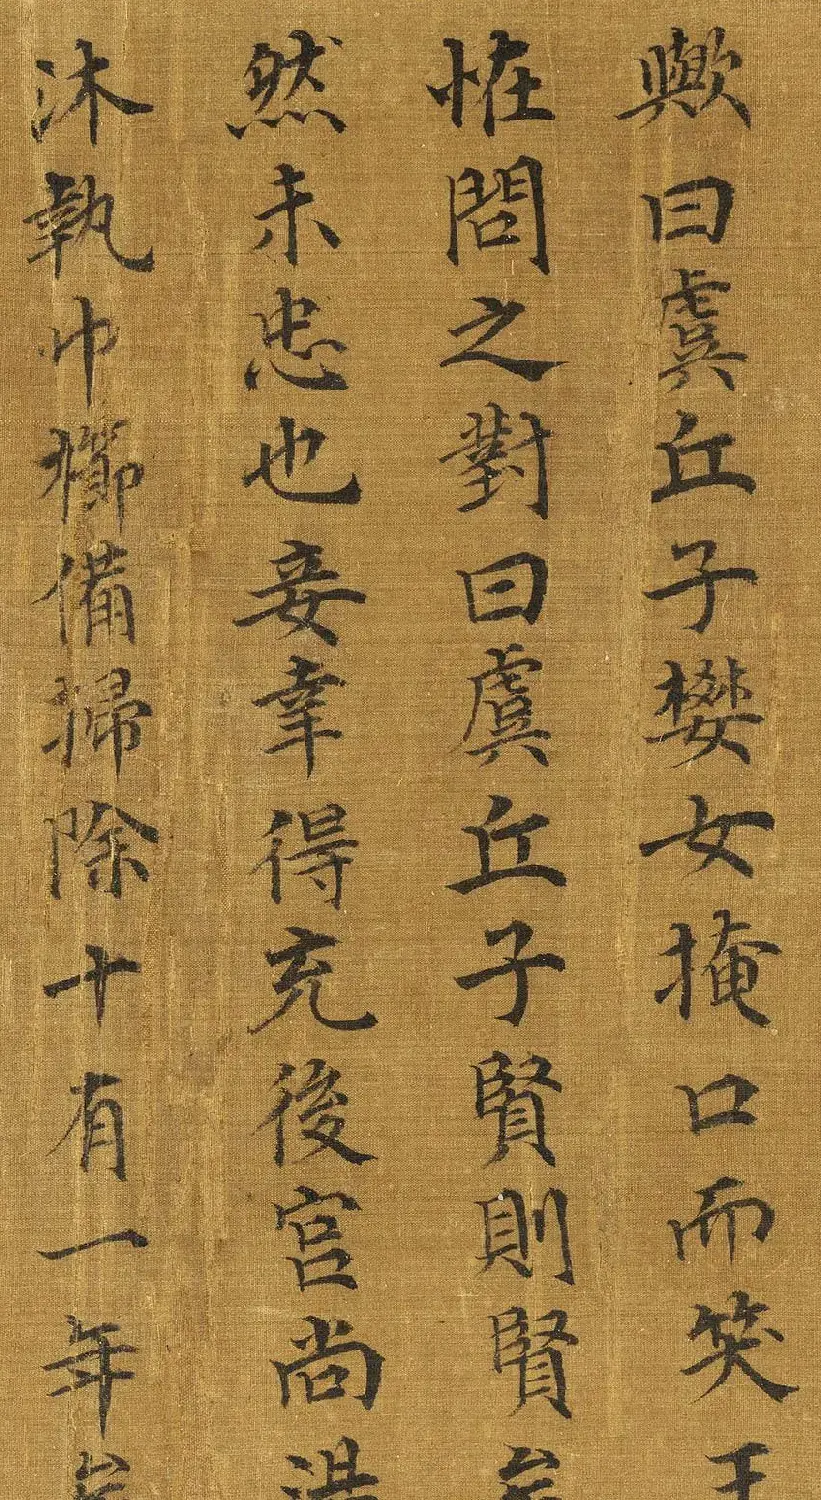 歟曰虞丘子樊女掩口而笑王
恠問之對曰虞丘子賢則賢矣
然未忠也妾幸得充後宮尚湯
沐執巾櫛備掃除十有一年矣